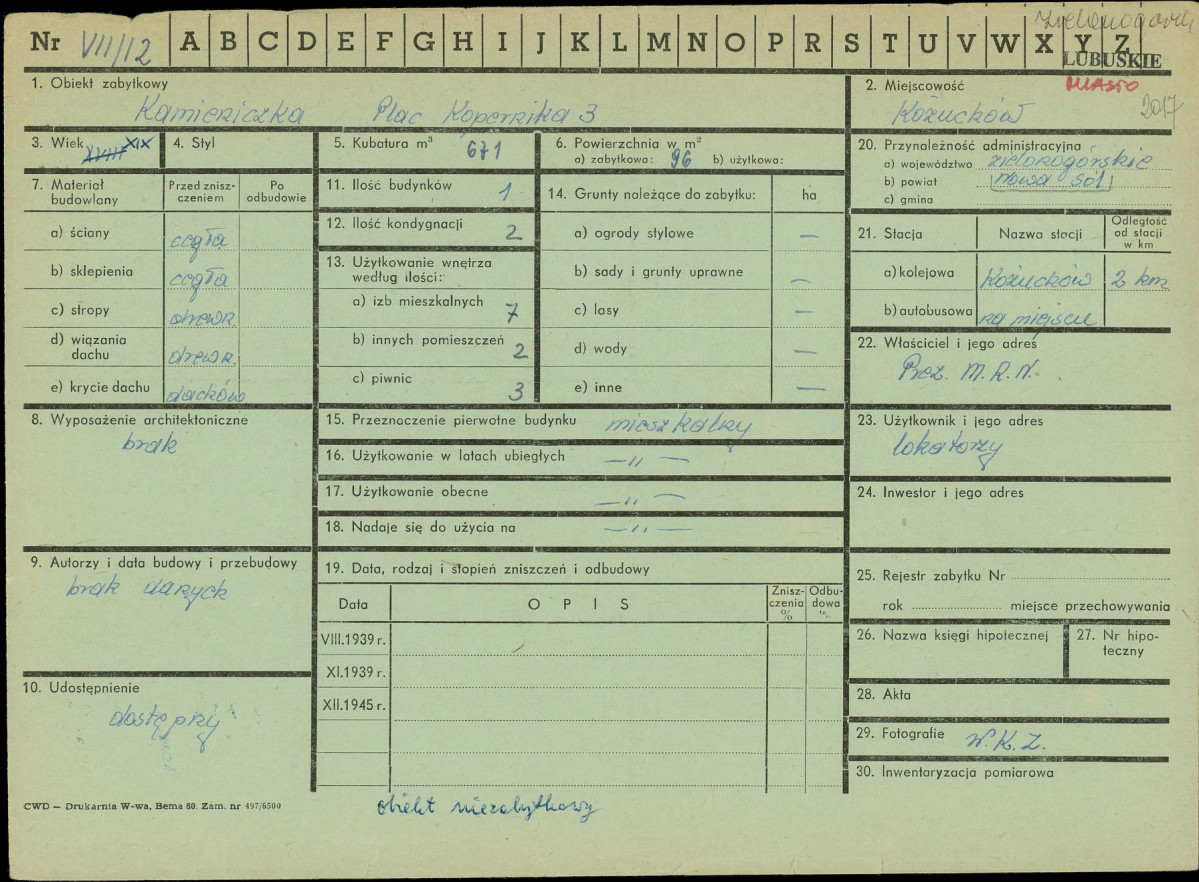 Nr VII/12 A B C D E F G H I J K L M N O P R S T U V W X Y Z
LUBUSKIE
MIASTO
2017
1. Obiekt zabytkowy
Kamieniczka Plac Kopernika 3
2. Miejscowość
Kożuchów
3. Wiek XVIII XIX
4. Styl
5. Kubatura m³ 671
6. Powierzchnia w m²
a) zabytkowa: 96 b) użytkowa:
7. Materiał budowlany
Przed zniszczeniem
Po odbudowie
a) ściany cegła
b) sklepienia cegła
c) stropy drewn.
d) wiązania dachu drewn.
e) krycie dachu dachów
8. Wyposażenie architektoniczne
brak
9. Autorzy i data budowy i przebudowy
brak danych
10. Udostępnienie
dostępny
11. Ilość budynków 1
12. Ilość kondygnacji 2
13. Użytkowanie wnętrza według ilości:
a) izb mieszkalnych 7
b) innych pomieszczeń 2
c) piwnic 3
14. Grunty należące do zabytku: ha
a) ogrody stylowe —
b) sady i grunty uprawne —
c) lasy —
d) wody —
e) inne —
15. Przeznaczenie pierwotne budynku mieszkalny
16. Użytkowanie w latach ubiegłych —„—
17. Użytkowanie obecne —„—
18. Nadaje się do użycia na —„—
19. Data, rodzaj i stopień zniszczeń i odbudowy
Data OPIS Zniszczenia % Odbudowa %
VIII.1939 r.
XI.1939 r.
XII.1945 r.
20. Przynależność administracyjna
a) województwo zielonogórskie
b) powiat nowa sól
c) gmina
21. Stacja Nazwa stacji Odległość od stacji w km
a) kolejowa Kożuchów 2 km
b) autobusowa na miejscu
22. Właściciel i jego adres
Prez. M.R.N.
23. Użytkownik i jego adres
lokatorzy
24. Inwestor i jego adres
25. Rejestr zabytku Nr
rok miejsce przechowywania
26. Nazwa księgi hipotecznej
27. Nr hipoteczny
28. Akta
29. Fotografie W.K.Z.
30. Inwentaryzacja pomiarowa
CWD — Drukarnia W-wa, Bema 60. Zam. nr 497/6500
obiekt niezabytkowy